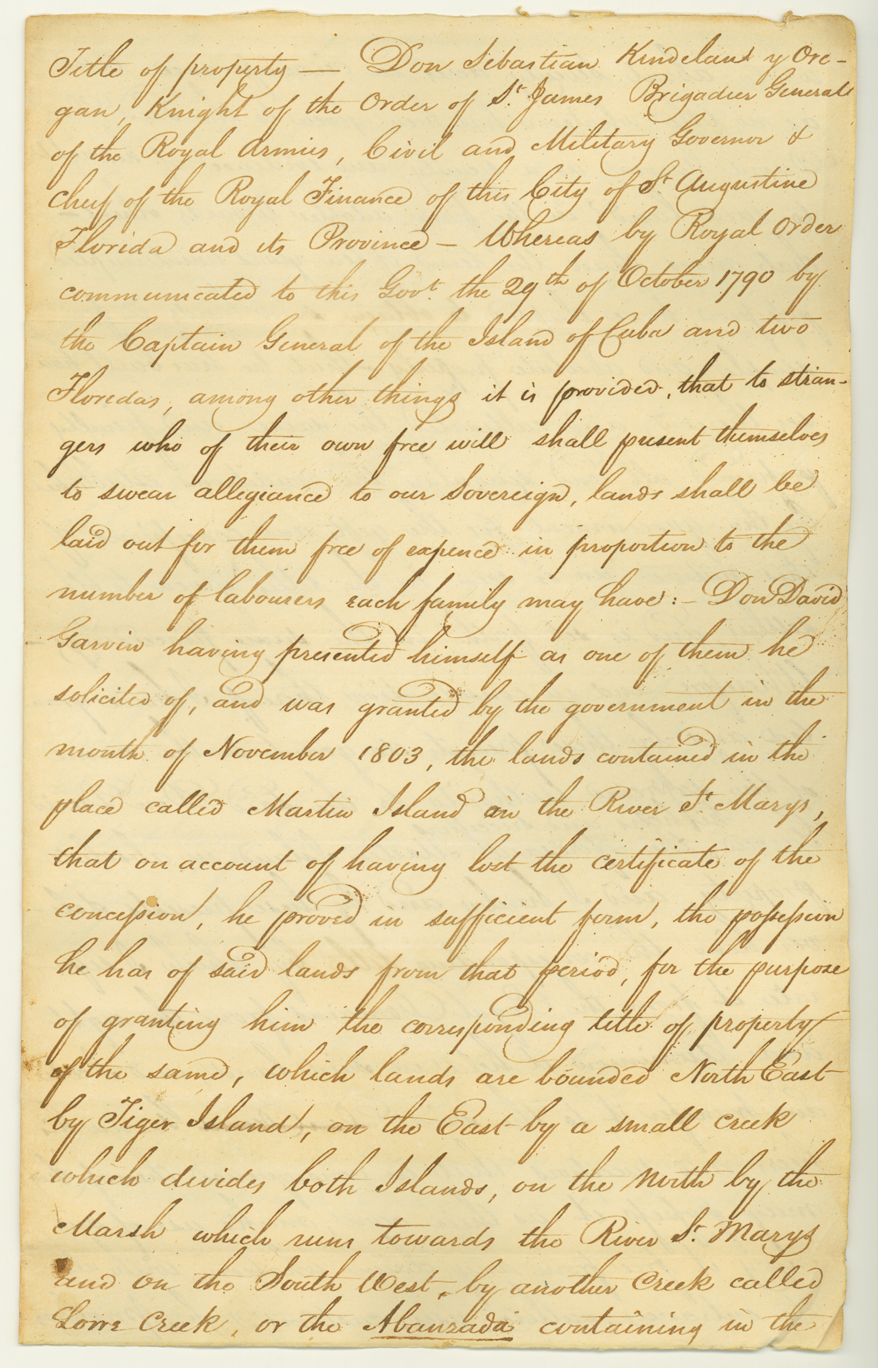 Title of property — Don Sebastian Kindeland y Ore-
gan, Knight of the Order of St. James Brigadier General
of the Royal Armies, Civil and Military Governor &
Cheif of the Royal Finance of this City of St Augustine
Florida and its Province — Whereas by Royal Order
communicated to this Govt. the 29th of October 1790 by
the Captain General of the Island of Cuba and two
Floredas, among other things it is provided, that to stran-
gers who of their own free will shall present themselves
to swear allegiance to our Sovereign, lands shall be
laid out for them free of expence in proportion to the
number of labourers each family may have: — Don David
Garvin having presented himself as one of them he
solicited of, and was granted by the government in the
month of November 1803, the lands contained in the
place called Martin Island in the River St. Marys,
that on account of having lost the certificate of the
concession, he proved in sufficient form, the possession
he has of said lands from that period, for the purpose
of granting him the corresponding title of property
of the same, which lands are bounded North East
by Tiger Island, on the East by a small creek
which divides both Islands, on the North by the
Marsh which runs towards the River St. Marys
and on the South West, by another Creek called
Creek, or the Abanzada containing in the